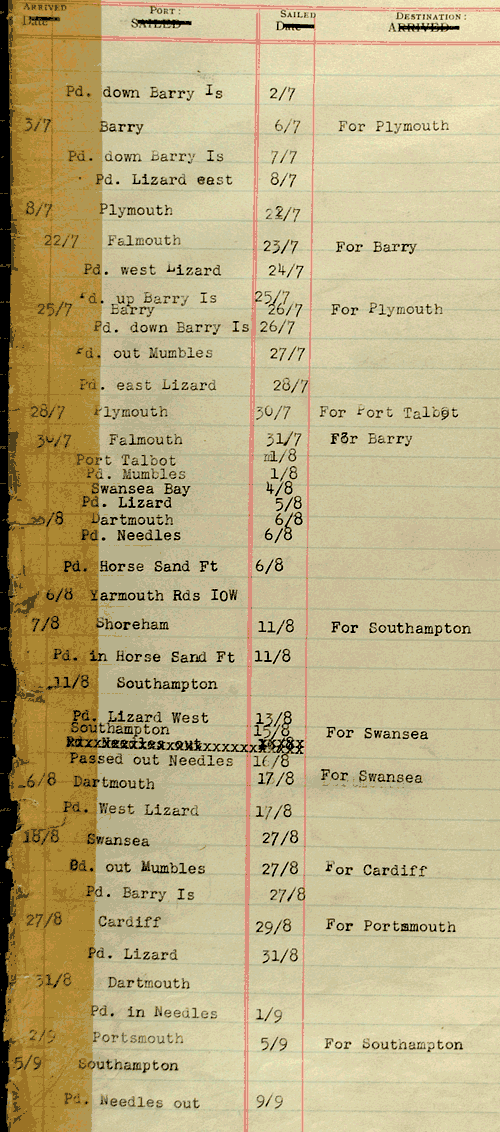 ARRIVED PORT: SAILED DESTINATION:
Date SAILED Date ARRIVED
Pd. down Barry Is 2/7
3/7 Barry 6/7 For Plymouth
Pd. down Barry Is 7/7
Pd. Lizard east 8/7
8/7 Plymouth 22/7
22/7 Falmouth 23/7 For Barry
Pd. west Lizard 24/7
Pd. up Barry Is 25/7
25/7 Barry 26/7 For Plymouth
Pd. down Barry Is 26/7
Pd. out Mumbles 27/7
Pd. east Lizard 28/7
28/7 Plymouth 30/7 For Port Talbot
30/7 Falmouth 31/7 For Barry
Port Talbot 1/8
Pd. Mumbles 1/8
Swansea Bay 4/8
Pd. Lizard 5/8
/8 Dartmouth 6/8
Pd. Needles 6/8
Pd. Horse Sand Ft 6/8
6/8 Yarmouth Rds IOW
7/8 Shoreham 11/8 For Southampton
Pd. in Horse Sand Ft 11/8
11/8 Southampton
Pd. Lizard West 13/8
Southampton 15/8 For Swansea
Pd. Needles out
Passed out Needles 16/8
6/8 Dartmouth 17/8 For Swansea
Pd. West Lizard 17/8
18/8 Swansea 27/8
Pd. out Mumbles 27/8 For Cardiff
Pd. Barry Is 27/8
27/8 Cardiff 29/8 For Portsmouth
Pd. Lizard 31/8
31/8 Dartmouth
Pd. in Needles 1/9
2/9 Portsmouth 5/9 For Southampton
5/9 Southampton
Pd. Needles out 9/9